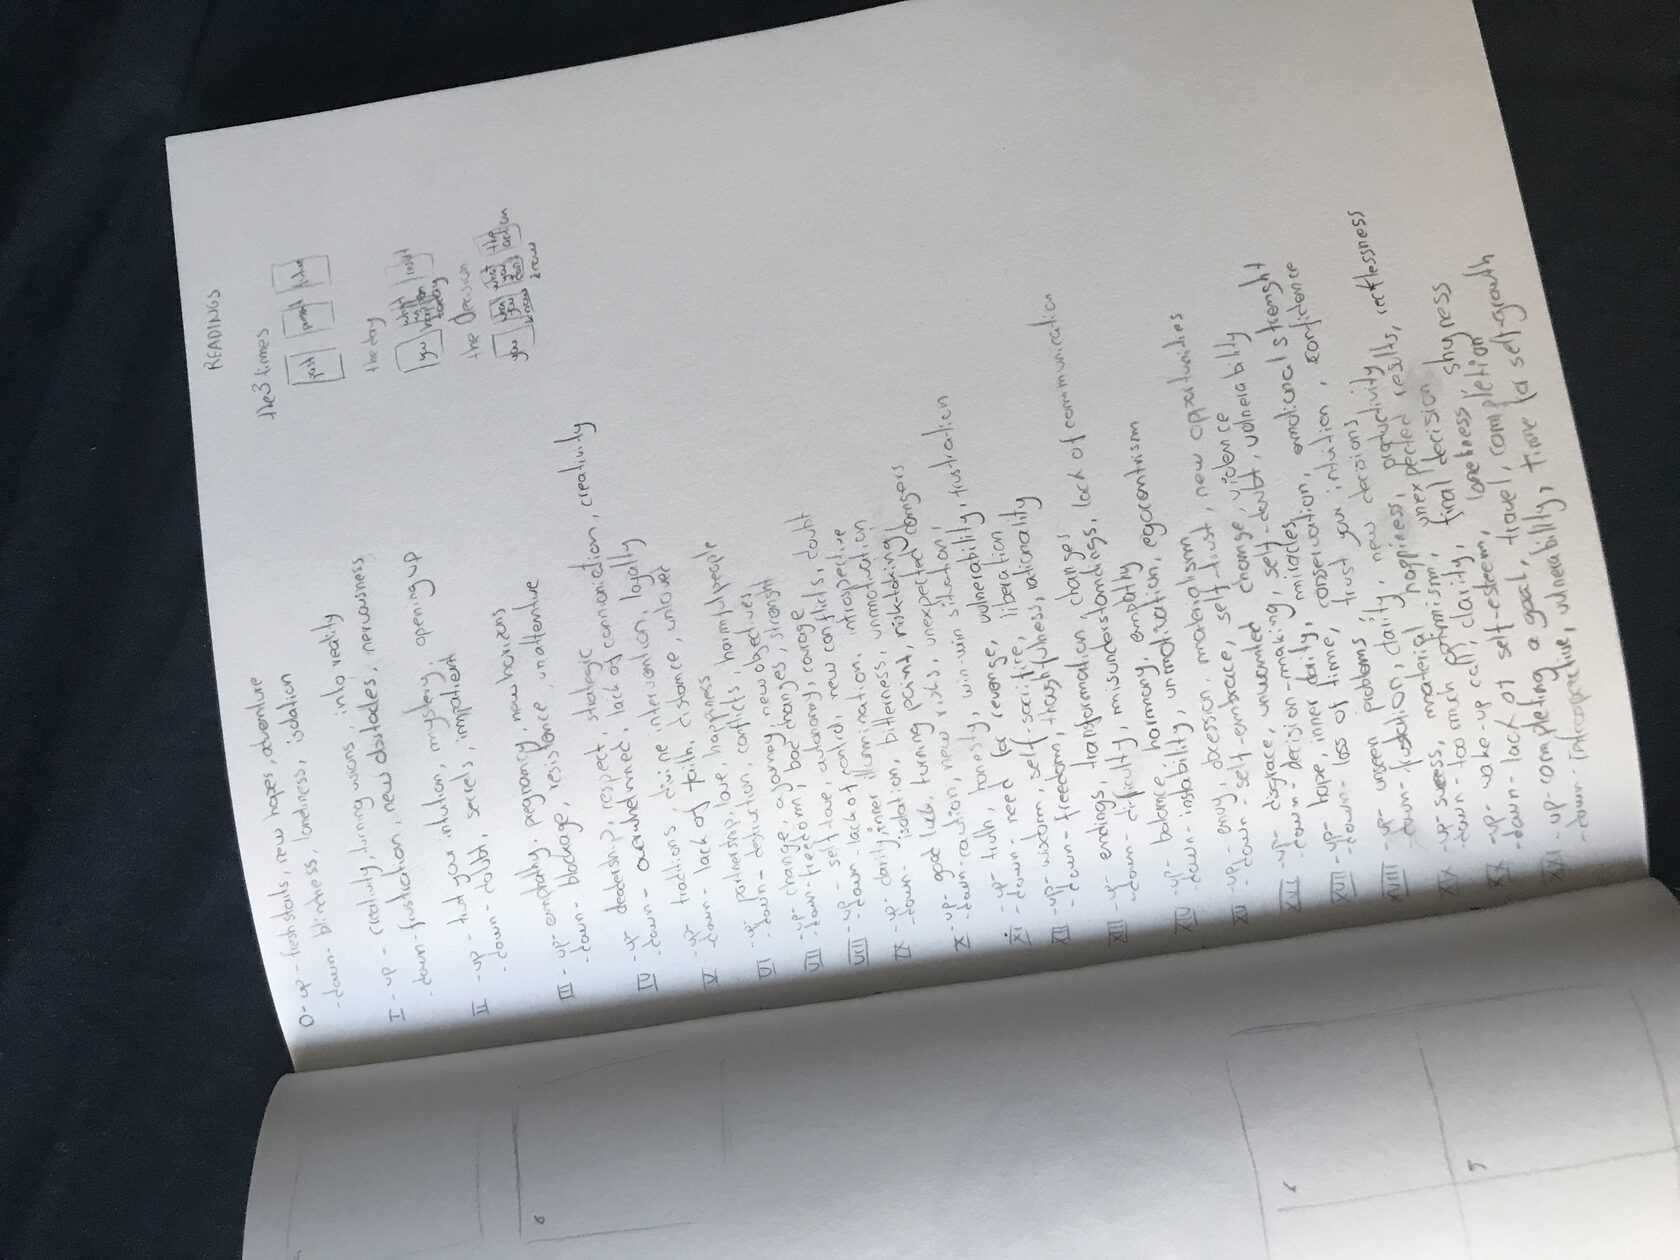 READINGS
the 3 times
past present future
the day
you what will happen today
the Decision
you what you know what you don't know the action
0 - up - fresh starts, new hopes, adventure
- down - blindness, loneliness, isolation
I - up - creativity, turning wons, into reality
- down - frustration, new obstacles, nervousness
II - up - trust your intuition, mystery, opening up
- down - doubt, secrets, impatient
III - up - emphathy, pregnancy, new horizons
- down - blockage, resistence, unattentive
IV - up - leadership, respect, strategic comunication, creativity
- down - overwhelmed, lack of
V - up - traditions, divine intervention, loyalty
- down - lack of faith, distance, unloved
VI - up - partnership, love, happiness
- down - destruction, conflicts, harmful people
VII - up - change, a journey, new objectives
- down - freedom, bad changes, strenght
VIII - up - self love, autonomy, courage
- down - lack of control, new conflicts, doubt
IX - up - clarity, inner illumination, introspective
- down - isolation, bitterness, unmotivation
X - up - good luck, turning point, risk-taking
- down - caution, new risks, unexpected dangers
XI - up - truth, honesty, win-win situation,
- down - need for revenge, vulnerability, frustration
XII - up - wistom, self-sacrifice, liberation
- down - freedom, thoughtfulness, rationality
XIII - up - endings, transformation, changes
- down - difficulty, misunderstandings, lack of communication
XIV - up - balance, harmony, empathy
- down - instability, unmotivation, egocentrism
XV - up - envy, obsession, materialism
- down - self-embrace, self-trust, new opportunities
XVI - up - disgrace, unwanted change, violence
- down - decision-making, self-doubt, vulnerability
XVII - up - hope, inner clarity, miracles, emotional strenght
- down - loss of time, conservation,
XVIII - up - unseen problems, trust your intuition, confidence
- down - clarity, new decisions
XIX - up - success, material happiness, productivity
- down - too much optimism, unexpected results, recklessness
XX - up - wake-up call, clarity, final decision
- down - lack of self-esteem, loneliness, shyness
XXI - up - completing a goal, travel, completion
- down - vulnerability, time for self-growth
8
6
5